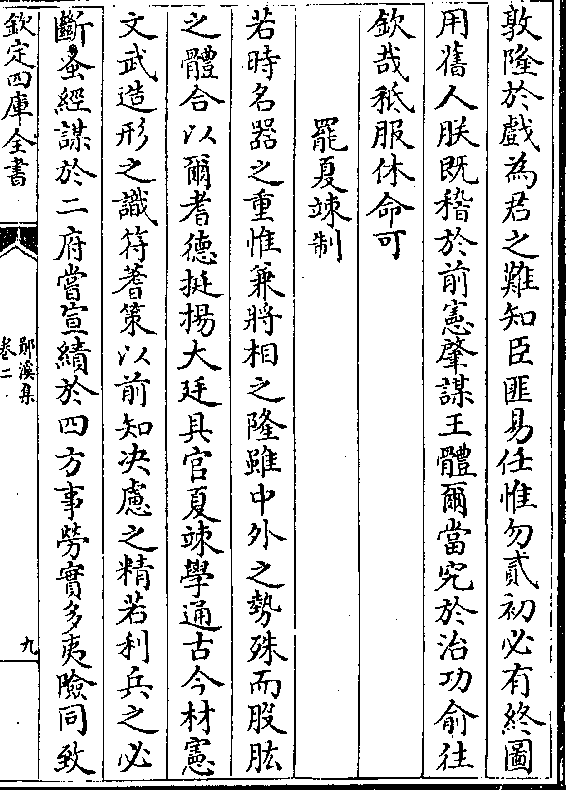 敦隆於戲為君之難知臣匪易任惟勿貳初必有終圖
用舊人朕既稽於前憲肇謀王體爾當究於治功俞往
欽哉祗服休命可
罷夏竦制
若時名器之重惟兼將相之隆雖中外之勢殊而股肱
之體合以爾耆德挺揚大廷具官夏竦學通古今材憲
文武造形之識符蓍策以前知决慮之精若利兵之必
斷蚤經謀於二府嘗宣績於四方事勞實多夷險同致
欽定四庫全書
鄖溪集
卷二
九